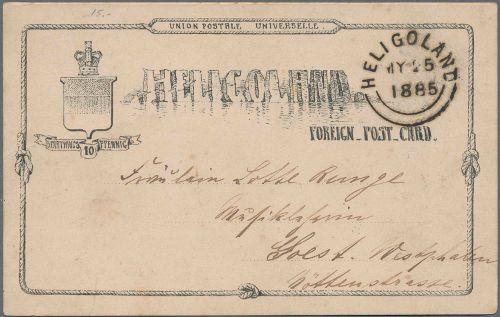 15.-
UNION POSTALE UNIVERSELLE.
HELIGOLAND.
HELIGOLAND
MY 25
1885
FARTHINGS 10 PFENNIG
FOREIGN _ POST _ CARD _
Fräulein Lotte Runge
Musiklehrerin
Soest. Westphalen
Wöttenstrasse.